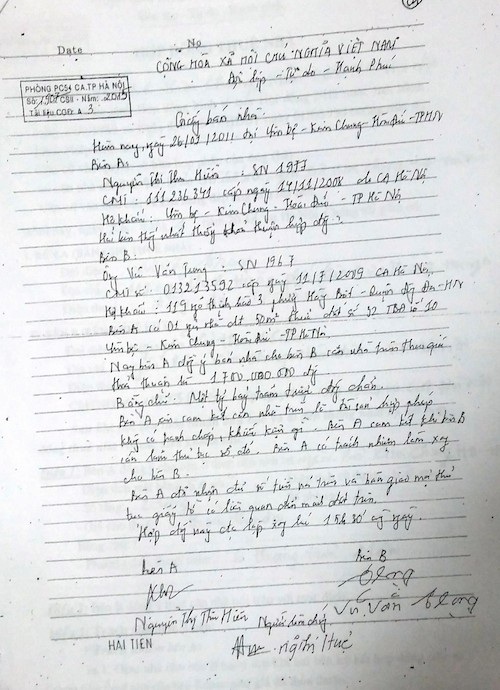 Date No
CỘNG HÒA XÃ HỘI CHỦ NGHĨA VIỆT NAM
Độc lập - Tự do - Hạnh Phúc
PHÒNG PC54 CA.TP HÀ NỘI
Số 1901 C54 - Năm: 2015
Tài liệu CGĐ: A 3
Giấy bán nhà
Hôm nay, ngày 26/01/2011 tại Yên bệ - Kim Chung - Hoài đức - TPHN
Bên A:
Nguyễn Thị Thu Hiền : SN 1977
CMT : 111236341 cấp ngày 14/11/2008 do CA Hà Nội
Hộ khẩu : Yên bệ - Kim Chung - Hoài Đức - TP Hà Nội
Hai bên thống nhất thỏa thuận hợp đồng
Bên B:
Ông Vũ Văn : SN 1967
CMT số : 013213592 cấp ngày 11/7/2009 CA Hà Nội
Hộ khẩu : 119 3 - Quận đống đa - HN
Bên A có 01 nhà dt 50m² thuộc đất số 32 TBĐ số 10
Yên bệ - Kim Chung - Hoài đức - TP Hà Nội
Nay bên A đồng ý bán nhà cho bên B căn nhà trên theo giá
thỏa thuận là 1700.000.000 đg
Bằng chữ: Một tỷ bảy trăm triệu đồng chẵn.
Bên A xin cam kết căn nhà trên là tài sản hợp pháp
không có tranh chấp, khiếu kiện gì. Bên A cam kết khi bên B
cần làm thủ tục sổ đỏ. Bên A có trách nhiệm làm xong
cho bên B.
Bên A đã nhận đủ số tiền nói trên và bàn giao mọi thủ
tục giấy tờ có liên quan đến mảnh đất trên.
Hợp đồng này được lập xong lúc 15h30 cùng ngày.
bên A bên B
Nguyễn Thị Thu Hiền Người làm chứng Vũ Văn
HẢI TIẾN